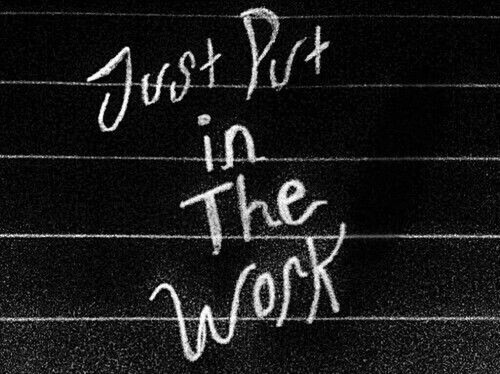 Just Put
in
The
Work